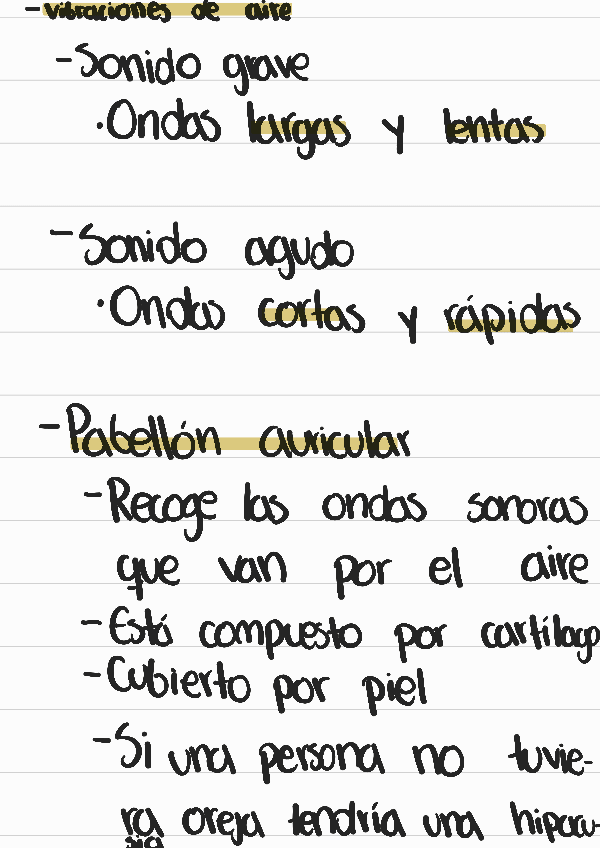 - vibraciones de aire
- Sonido grave
· Ondas largas y lentas
- Sonido agudo
· Ondas cortas y rápidas
- Pabellón auricular
- Recoge las ondas sonoras
que van por el aire
- Está compuesto por cartílago
- Cubierto por piel
- Si una persona no tuvie-
ra oreja tendría una hipacu-
sia